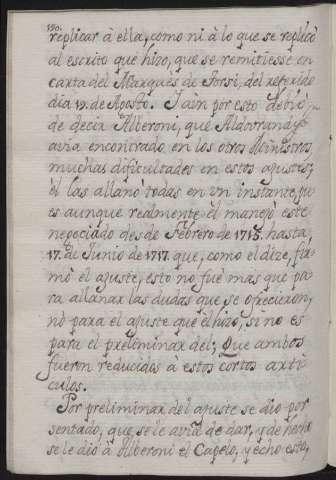 150.
replicar à ella, como ni à lo que se replicò
al escrito que hizo, que se remitiesse en
carta del Marquès de Forsi, del referido
dia 19. de Agosto. I aun por esto debiò
de decir Alberoni, que Aldovrandi
avia encontrado en los otros Ministros
muchas dificultades en estos ajustes,
èl las allanò todas en vn instante, pu
es aunque realmente èl manejò este
negociado desde Febrero de 1715. hasta
17. de Junio de 1717. que, como el dize, fir
mò el ajuste, esto no fuè mas que pa
ra allanar las dudas que se ofrecieron,
nò para el ajuste que èl hizo, si no es
para el preliminar del; Que ambos
fueron reducidos à estos cortos arti
culos.
Por preliminar del ajuste se dio por
sentado, que se le avia de dar, y de hecho
se le diò à Alberoni el Capelo, y echo esto,